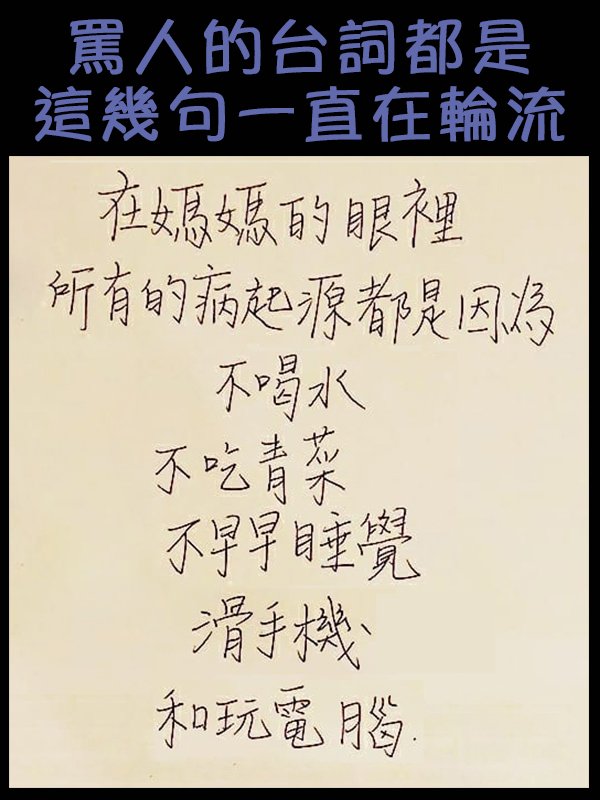 罵人的台詞都是
這幾句一直在輪流
在媽媽的眼裡
所有的病起源都是因為
不喝水
不吃青菜
不早早睡覺
滑手機、
和玩電腦.